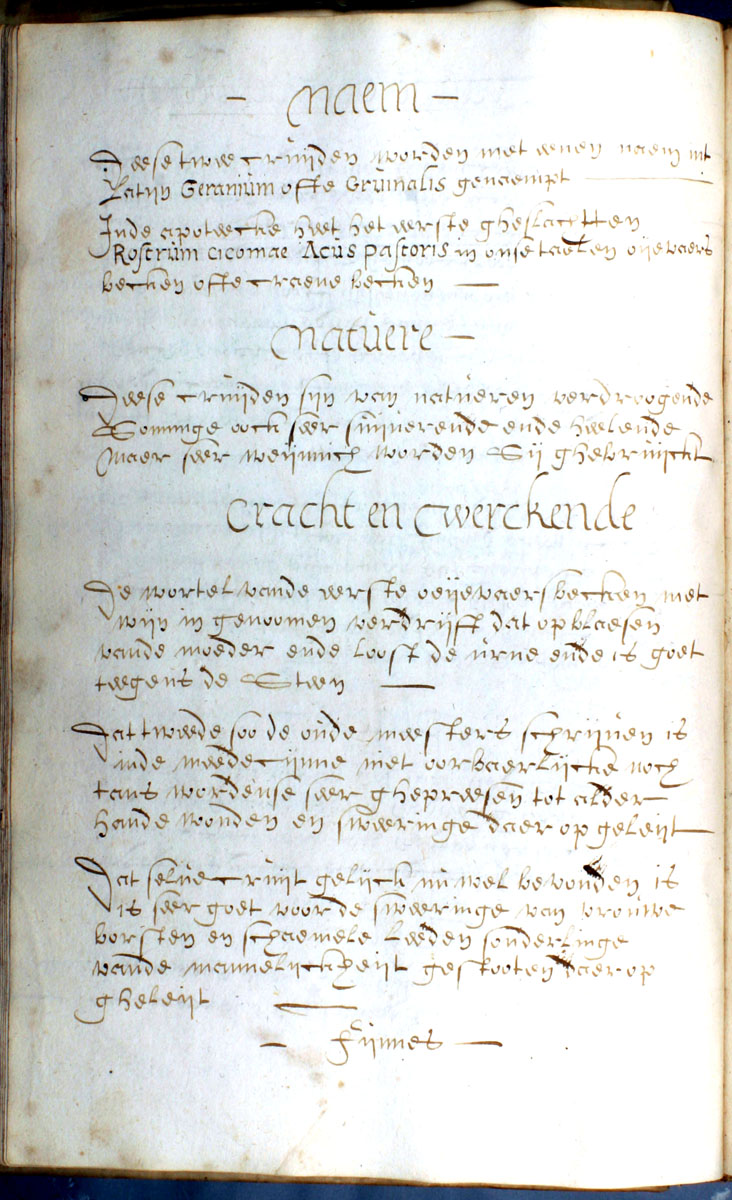 - Naem -
Deese twee cruijden worden met eenen naem int
Latijn Geranium offte Gruinalis genaempt
Inde apoteecke heet het eerste gheslachtten
Rostrum ciconiae Acus pastoris in onse taelen oijevaers
becken offte craene becken
Natuere -
Deese cruijden sijn van natueren verdroogende
Sommige oock seer suijverende ende heelende
Maer seer weijnnich worden Sij ghebruijckt
Cracht en Cwerckende
De wortel vande eerste oeijevaersbecken met
wijn in genoomen verdrijft dat opblaesen
vande moeder ende loost de urne ende is goet
teegens de Steen
Dat tweede soo de oude meesters schrijven is
inde meedecijnne niet oorbaerlijcke noch
tans wordense seer ghepreesen tot alder
hande wonden en sweeringe daer op geleijt
Dat selve cruijt gelijck nu wel bevonden is
is seer goet voor de sweeringe van vrouwe
borsten en schaemele Leeden sonderlinge
vande mannelijckheijt gestooten daer op
gheleijt
- Fijnnes -